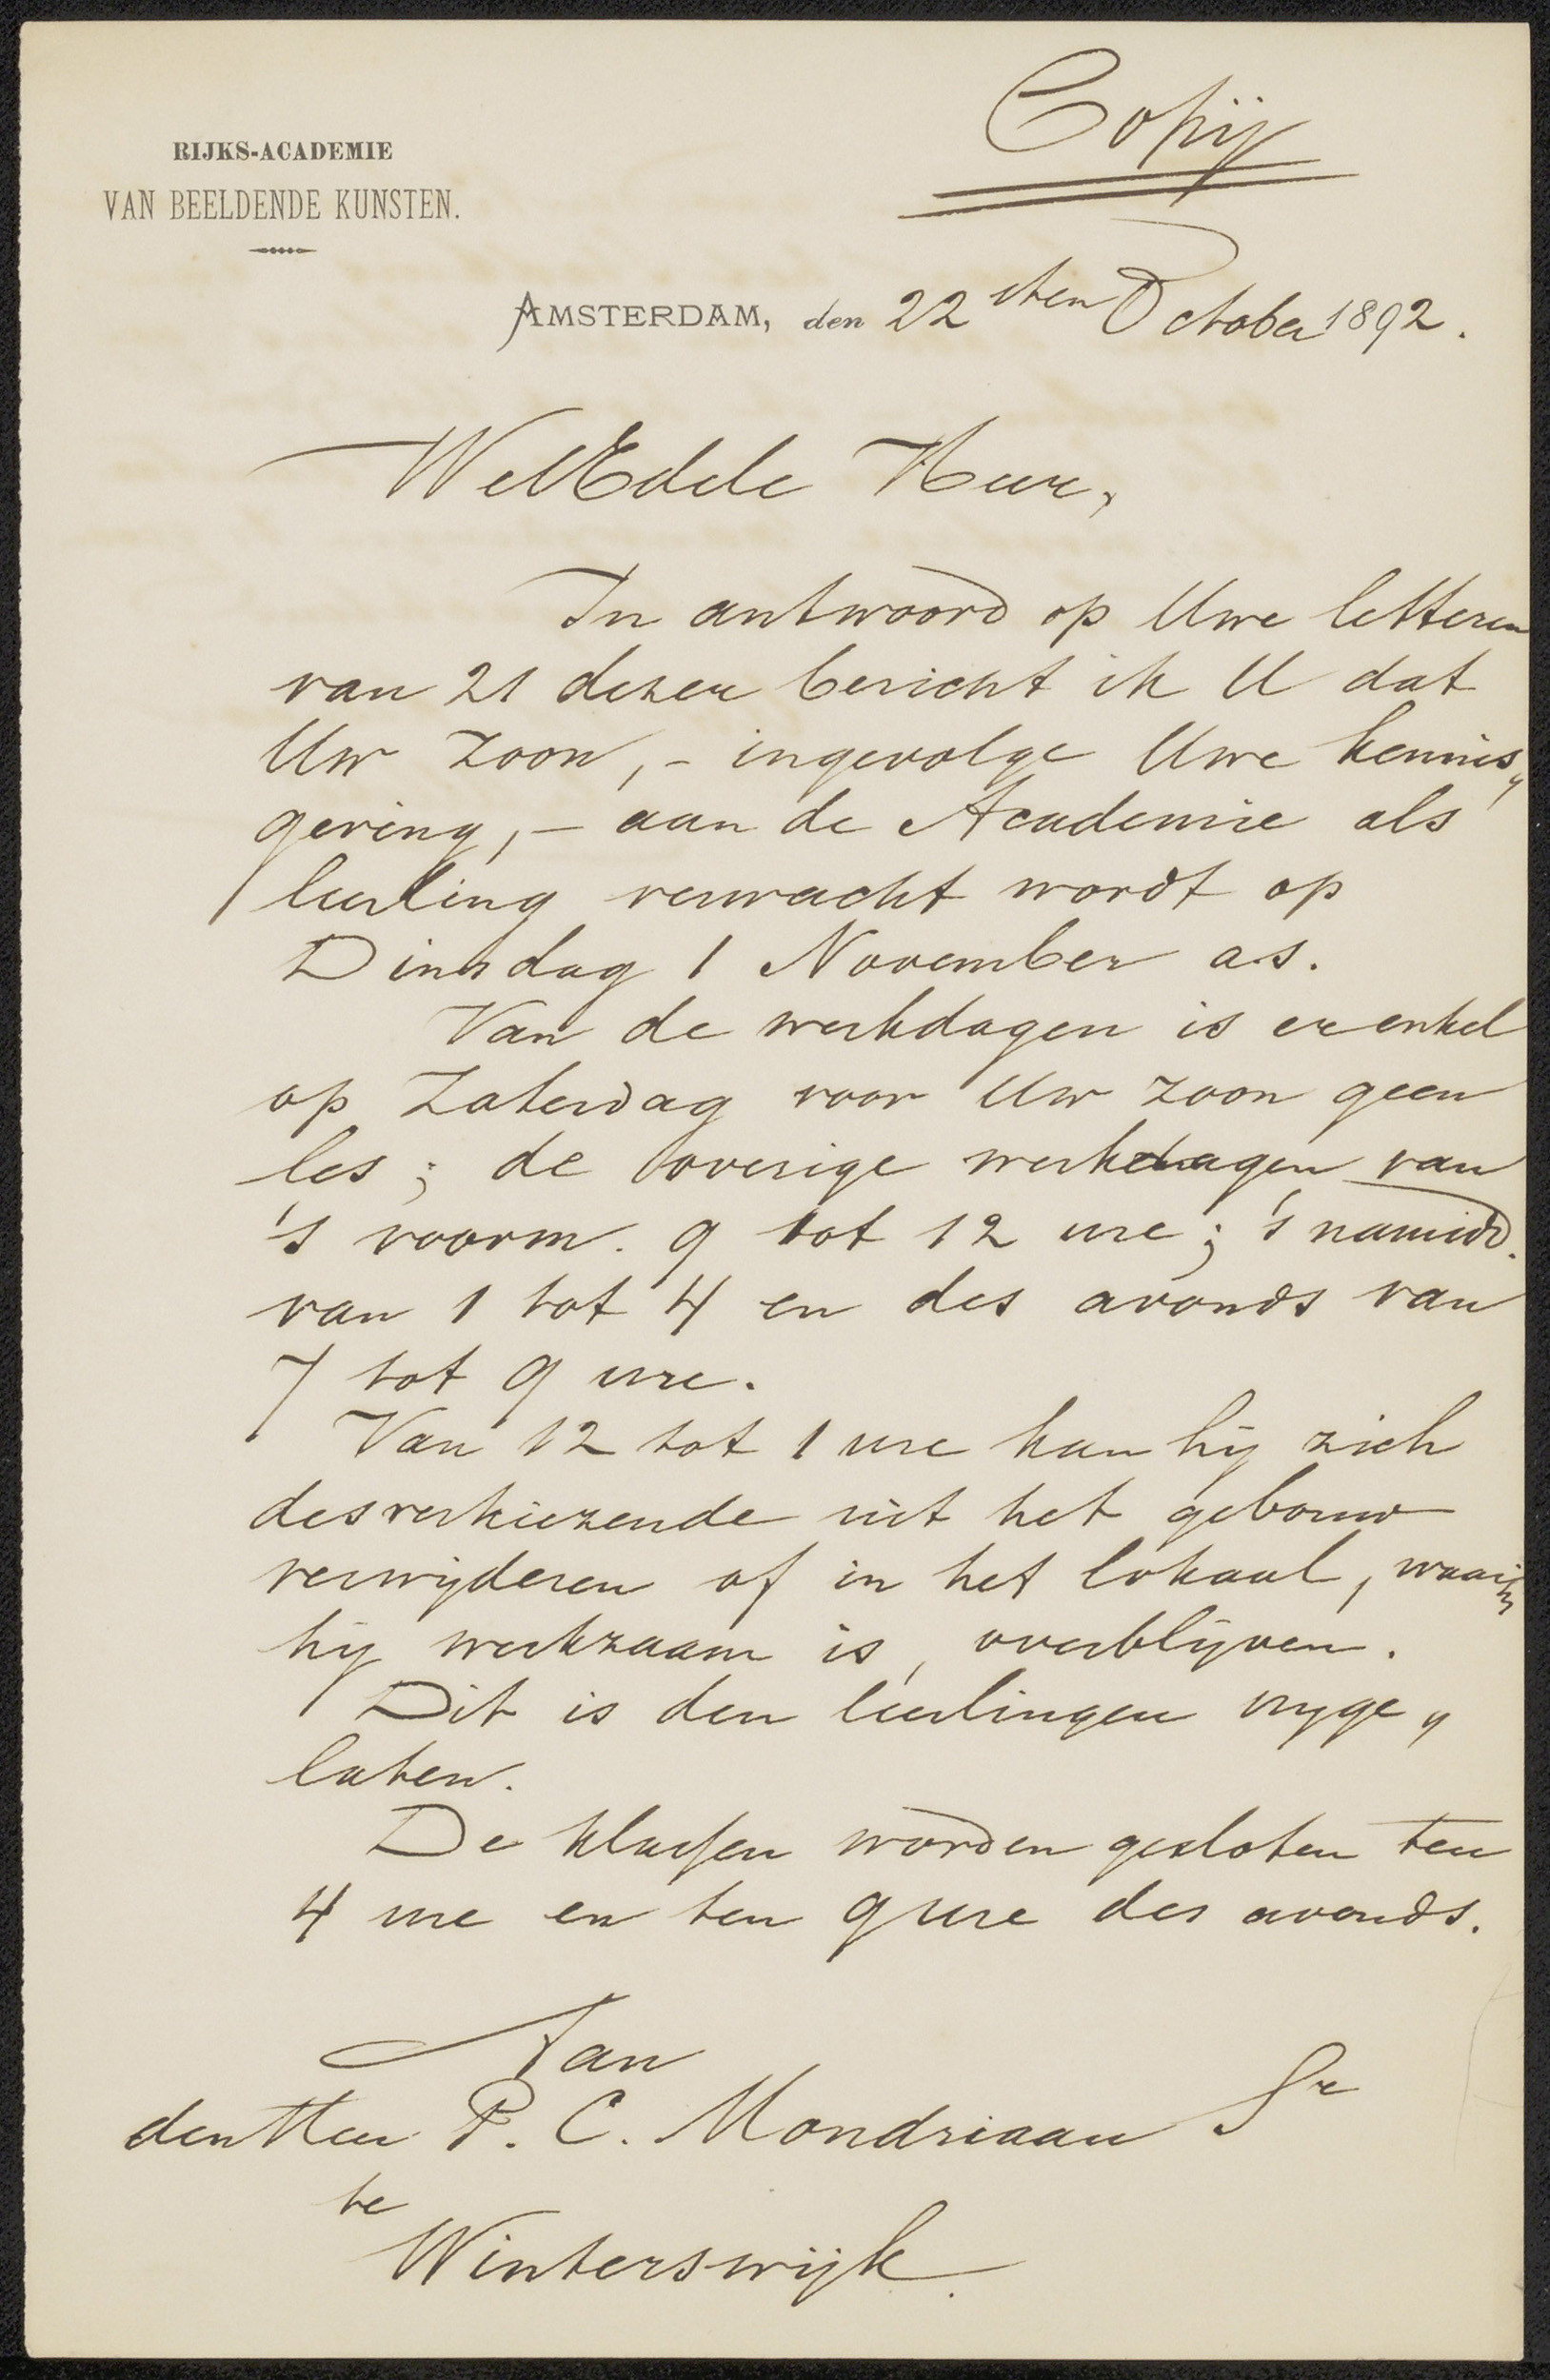 Copij
RIJKS-ACADEMIE
VAN BEELDENDE KUNSTEN.
AMSTERDAM, den 22sten October 1892.
WelEdele Heer,
In antwoord op Uwe letteren
van 21 dezer bericht ik U dat
Uw zoon, - ingevolge Uwe kennis„
geving, - aan de Academie als
leerling verwacht wordt op
Dinsdag 1 November a.s.
Van de werkdagen is er enkel
op Zaterdag voor Uw zoon geen
les; de overige werkdagen van
's voorm. 9 tot 12 ure; 's namidd.
van 1 tot 4 en des avonds van
7 tot 9 ure.
Van 12 tot 1 ure kan hij zich
desverkiezende uit het gebouw
verwijderen of in het lokaal, waarin
hij werkzaam is, overblijven.
Dit is den leerlingen vrijge„
laten.
De klassen worden gesloten ten
4 ure en ten 9 ure des avonds.
Aan
den Heer P. C. Mondriaan Sr
te
Winterswijk.